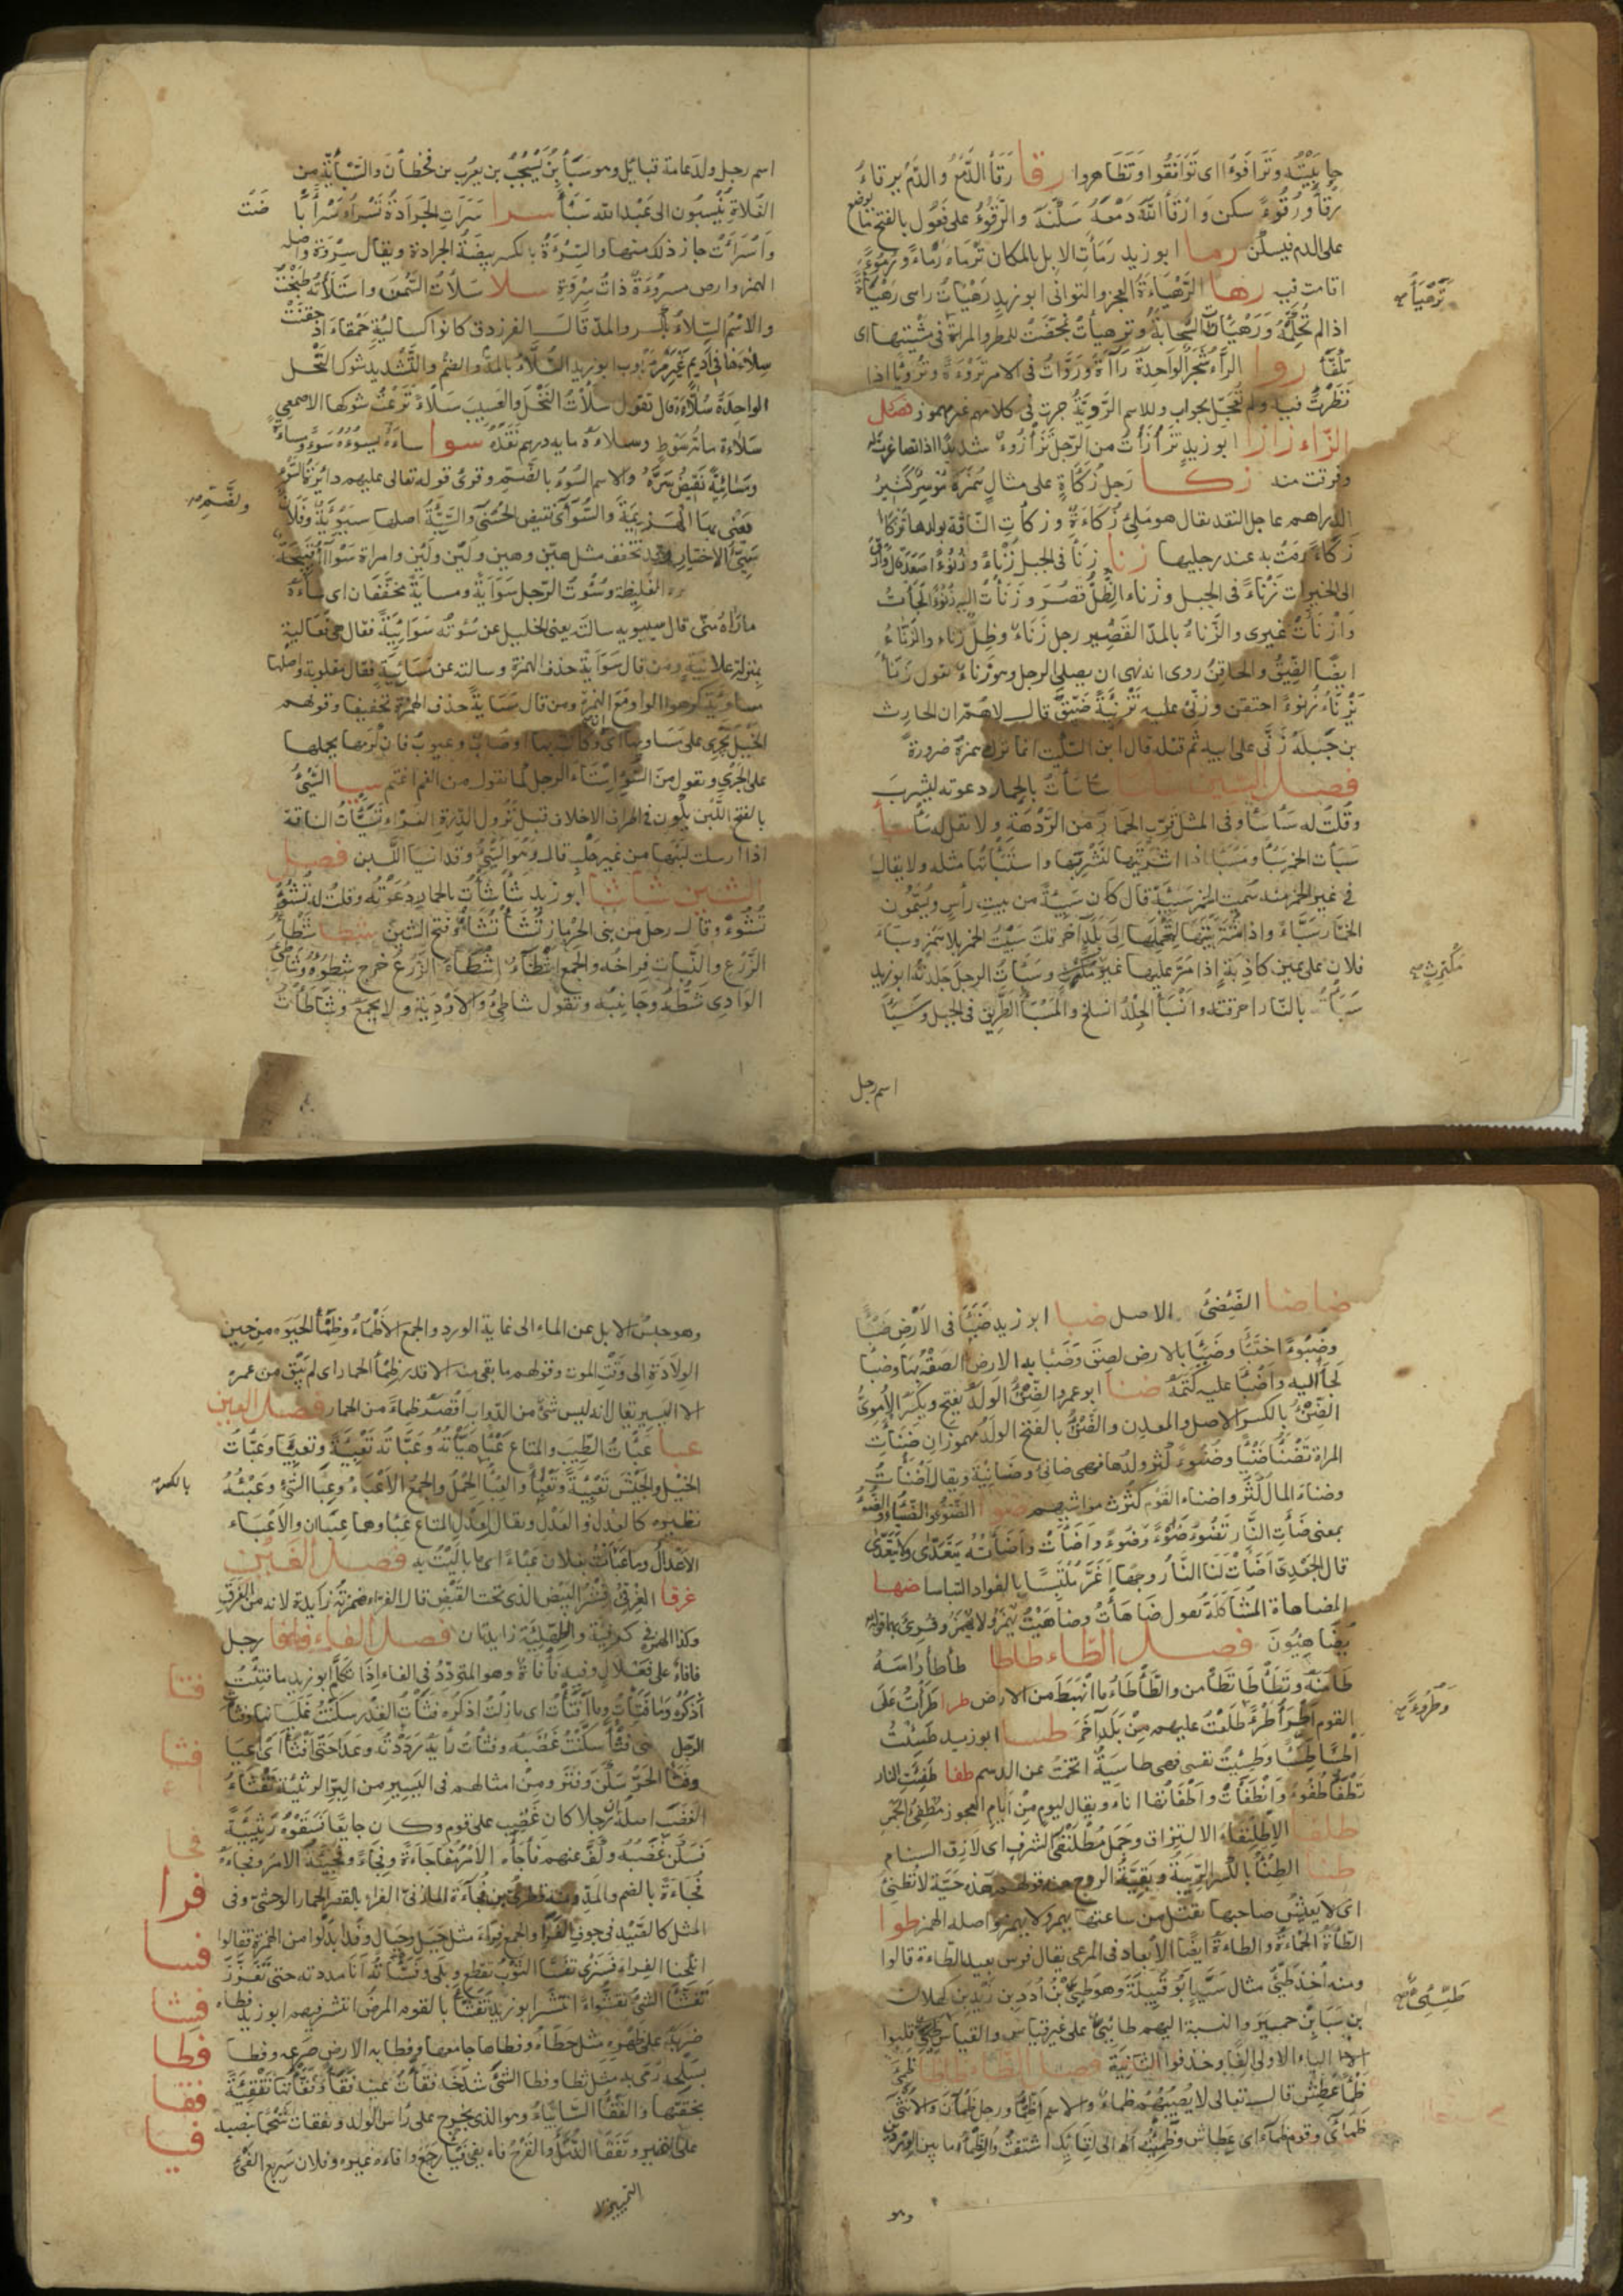 جابيته وترافووا اى توافقوا وتظاهروا رقا رقأ الدمع والدم يرقاء
يرقأ ورقوء سكن وارقأ الله دمعه سكنه والرقوء على فعول بالفتح ما يوضع
على الدم فيسكن رما ابو زيد رمأت الابل بالمكان ترماء رماء ورموءا
اقامت فيه رها الرهيأة العجز والتوانى ابو زيد رهيات راسى رهيأة
ترهيأ
اذا لم تحكمه ورهيأت السحابة وترهيأت تمخضت للمطر والمراة فى مشيتها اى
تكفأ روا الراء شجر الواحدة راءة وروات فى الامر تروءة وترويا اذا
نظرت فيه ولم تعجل بجواب والاسم الروية جرت فى كلامهم غير مهموز فصل
الزاء زازا ابو زيد تزأزأت من الرجل تزأزؤا شديدا اذا تصاغرت له
وفرقت منه زكا رجل زكأة على مثال همزة موسر كثير
الدراهم عاجل النقد يقال هو ملىء زكاءة وزكأت الناقة بولدها تزكأ
زكاء رمت به عند رجليها زنا زنأ فى الجبل زنأ وزنوءا صعد
الى الخيرات تزناء فى الجبل وزناء الظل قصر وزنأت اليه زنوءا لجأت
وازنأت غيرى والزناء بالمد القصير رجل زناء وظل زناء والزناء
ايضا الضيق والحاقن روى انه نهى ان يصلى الرجل وهو زناء تقول زنأ
يزناء زنوءا احتقن وزنى عليه تزنية ضيق قال لاهم ان الحارث
بن جبله زنى على ابيه ثم قتله قال ابن السكيت انما ترك همزه ضرورة
فصل السين ساسا سأسأت بالحمار دعوته ليشرب
وقلت له سأسأ وفى المثل قرب الحمار من الردهة ولا تقل له سأ سبأ
سبأت الخمر سبأ ومسبأ اذا اشتريتها لتشربها واستبأتها مثله ولا يقال
فى غير الخمر منه سميت الخمر سبيئة قال كان سبيئة من بيت رأس ويسمون
الخمار سباء واذا اشتريتها لتحملها الى بلد اخر قلت سبيت الخمر بلا همز وسباء
مكترث
فلان على يمين كاذبة اذا مر عليها غير مكترث وسبأت الرجل جلدته ابو زيد
سبأت بالنار احرقته وانسبأ الجلد انسلخ والمسبأ الطريق فى الجبل وسبأ
اسم رجل
اسم رجل ولد عامة قبائل وهو سبأ بن يشجب بن يعرب بن قحطان والسبأية من
الغلاة ينسبون الى عبد الله سبأ سرا سرأت الجرادة تسرأ سرأ باضت
واسرأت حان ذلك منها والسرءة بالكسر بيضة الجرادة ويقال سروة واصله
الهمز وارض مسروءة ذات سروة سلا سلأت السمن واستلأته طبخت
والاسم السلاء بالكسر والمد قال الفرزدق كانوا كسالئة حمقاء اذ حقنت
سلاءها فى اديم غير مربوب ابو زيد السلاء بالمد والضم والتشديد شوك النخل
الواحدة سلاءة قال تقول سلأت النخل والعسيب سلاء نزعت شوكها الاصمعى
سلاءه مائة سوط وسلاءه مايه درهم نقده سوا ساءه يسوءه سوءا ومساءة
ومسائية نقيض سره والاسم السوء بالضم وقرى قوله تعالى عليهم دائرة السوء
يعنى بها الهزيمة والسوأى نقيض الحسنى والسيئة اصلها سيوئة وفلان
سيىء الاختيار وقد تخفف مثل هين وهين ولين ولين وامراة سوآء قبيحة
الغليظة وسؤت الرجل سواية ومساية مخففان اى ساءه
ما راه منى قال سيبويه سالته يعنى الخليل عن سؤته سوائية فقال هى فعالية
بمنزلة علانية ومن قال سواية حذف الهمزة وسالته عن مسائية فقال مقلوبة واصلها
مساوئة كرهوا الواو مع الهمزة ومن قال مساية حذف الهمزة تخفيفا وقولهم
الخيل تجرى على مساويها اى وان كانت بها اوصاب وعيوب فان كرمها يحملها
على الجرى وتقول من السوء استاء الرجل كما تقول من الغم اغتم سيا السيء
بالفتح اللبن يكون فى اطراف الاخلاف قبل نزول الدرة الفراء تسيأت الناقة
اذا ارسلت لبنها من غير حلب قال وهو السيء وقد انسيا اللبن فصل
الشين شاشا ابو زيد شأشأت بالحمار دعوته وقلت له تشؤ
تشوء وقال رجل من بنى الحرماز تشأ تشأ وفتح الشين شطا شطأ
الزرع والنبات فراخه والجمع اشطاء اشطاء الزرع خرج شطوه وشاطئ
الوادى شطه وجانبه وتقول شاطئ الاودية ولا يجمع وشاطأت
ضاضا الضئضئ الاصل ضبا ابو زيد ضبأ فى الارض ضبأ
وضبوءا اختبأ وضبأ بالارض لصق وضبأ به الارض الصقه بها وضبأ
لجأ اليه واضبأ عليه كتمه ضنا ابو عمرو الضنء الولد يفتح ويكسر الاموى
الضنء بالكسر الاصل والمعدن والضنء بالفتح الولد مهموزان ضنأت
المراة تضنأ ضنأ وضنوءا كثر ولدها فهى ضانئ وضانئة ويقال اضنأت
وضناء المال كثر واضناء القوم كثرت مواشيهم ضوا الضوء والضياء والضوء
بمعنى ضأت النار تضوء ضوءا وضوءا واضأت واضأته يتعدى ولا يتعدى
قال الجعدى اضأت لنا النار وجها اغر ملتبسا بالفواد التباسا ضها
المضاهاة المشاكلة تقول ضاهأت وضاهيت يهمز ولا يهمز وقرى بهما قوله
يضاهئون فصل الطاء طاطا طأطأ راسه
طامنه وتطأطأ تطامن والطأطاء ما انهبط من الارض طرا طرأت على
وطروءا
القوم اطرأ طرءا طلعت عليهم من بلد اخر طسا ابو زيد طسئت
اطسأ طسأ وطسئت نفسى فهى طاسية اتخمت عن الدسم طفا طفئت النار
تطفأ طفوءا وانطفأت واطفأتها انا ويقال ليوم من ايام العجوز مطفئ الجمر
طلفا الاطلنفاء الالتزاق وجمل مطلنفئ الشرف اى لازق السنام
طنا الطنء بالكسر الريبة وبقية الروح منه قولهم هذه حية لا تطنئ
اى لا يعيش صاحبها تقتل من ساعتها يهمز ولا يهمز واصله الهمز طوا
الطأة الحمأة والطاءة ايضا الابعاد فى المرعى يقال فرس بعيد الطاءة قالوا
ومنه اخذ طيئ مثال سيد ابو قبيلة وهو طيئ بن ادد بن زيد بن كهلان
بن سبأ بن حمير والنسبة اليهم طائى على غير قياس والقياس طيئى قلبوا
الياء الاولى الفا وحذفوا الثانية فصل الظاء ظاظا ظمئ
ظمأ عطش قال تعالى لا يصيبهم ظمأ والاسم الظمأ ورجل ظمآن والانثى
ظمأى وقوم ظماء اى عطاش وظمئت الى لقائك اشتقت والظمء ما بين الوردين
وهو
وهو حبس الابل عن الماء الى غاية الورد والجمع الاظماء وظمأ الحيوه من حين
الولادة الى وقت الموت وقولهم ما بقى منه الا قدر ظمأ الحمار اى لم يبق من عمره
الا اليسير يقال انه ليس شئ من الدواب اقصر ظماء من الحمار فصل العين
عبا عبأت الطيب والمتاع عبأ هيأته وعبأته تعبئة وتعبيا وعبأت
بالكسر
الخيل والجيش تعبية وتعبيا والعبأ الحمل والجمع الاعباء وعبأ الشئ وعبئه
نظيره كالعدل والعدل ويقال لعدل المتاع عبأ وهما عبأن والاعباء
الاعدال وما عبأت بفلان عبأ اى ما باليت به فصل الغين
غرقا الغرقئ قشر البيض الذى تحت القيض قال الفراء همزته زايدة لانه من الغرق
وكذا الهمزة فى كرفئة والطهلئة زايدتان فصل الفاء فافا رجل
فافاء على فعلال وفيه فأفأة وهو المتردد فى الفاء اذا تكلم ابو زيد ما فتئت
فتا
اذكره وما فتأت وما افتأت اى ما زلت اذكره فثأت القدر سكنت غليانها وفثأت
فثا
الرجل فثأ سكنت غضبه وفثأت رايه رددته وعدا حتى افثأ اى اعيا
وفثأ الحر سكن وفتر ومن امثالهم فى اليسير من البر الرثيئة تفثاء
الغضب اصله ان رجلا كان غضب على قوم وكان جايعا فسقوه رثيئة
فجا
فسكن غضبه وكف عنهم فأجأه الامر مفاجاءة وفجاء وفجئه الامر وفجاءه
فجاءة بالضم والمد ومنه قطرى بن فجاءة المازنى الفرا بالقصر الحمار الوحشى وفى
فرا
المثل كل الصيد فى جوف الفرا والجمع فراء مثل جبل وجبال وقد ابدلوا من الهمزة فقالوا
انكحنا الفراء فسنرى تفسأ الثوب تقطع وبلى وفسأته انا مددته حتى تفزر
فسا
تفشأ الشئ تفشوءا انتشر ابو زيد تفشأ بالقوم المرض انتشر فيهم ابو زيد فطاء
فشا
ضربه على ظهره مثل حطاء وفطاها جامعها وفطا به الارض صرعه وفطا
فطا
بسلحه رمى به مثل ثطا وفطا الشئ شدخه فقأت عينه فقأ وفقأتها تفقئة
فقا
بحقتها والفقأ السابياء وهو الذى يخرج على رأس الولد وتفقات شحما بنصبه
على التمييز وتفقأ الدمل والقرح فاء يفئ فيأ رجع وافاءه غيره وفلان سريع الفئ
فيا
التمييز